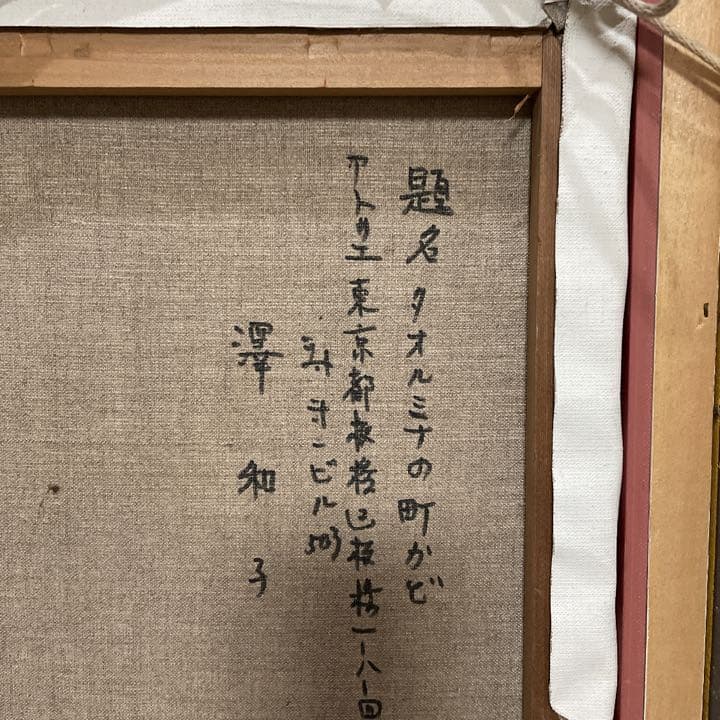 題名 タオルミナの町かど
アトリエ 東京都板橋区板橋一-八-四
ビル 503
澤 和子